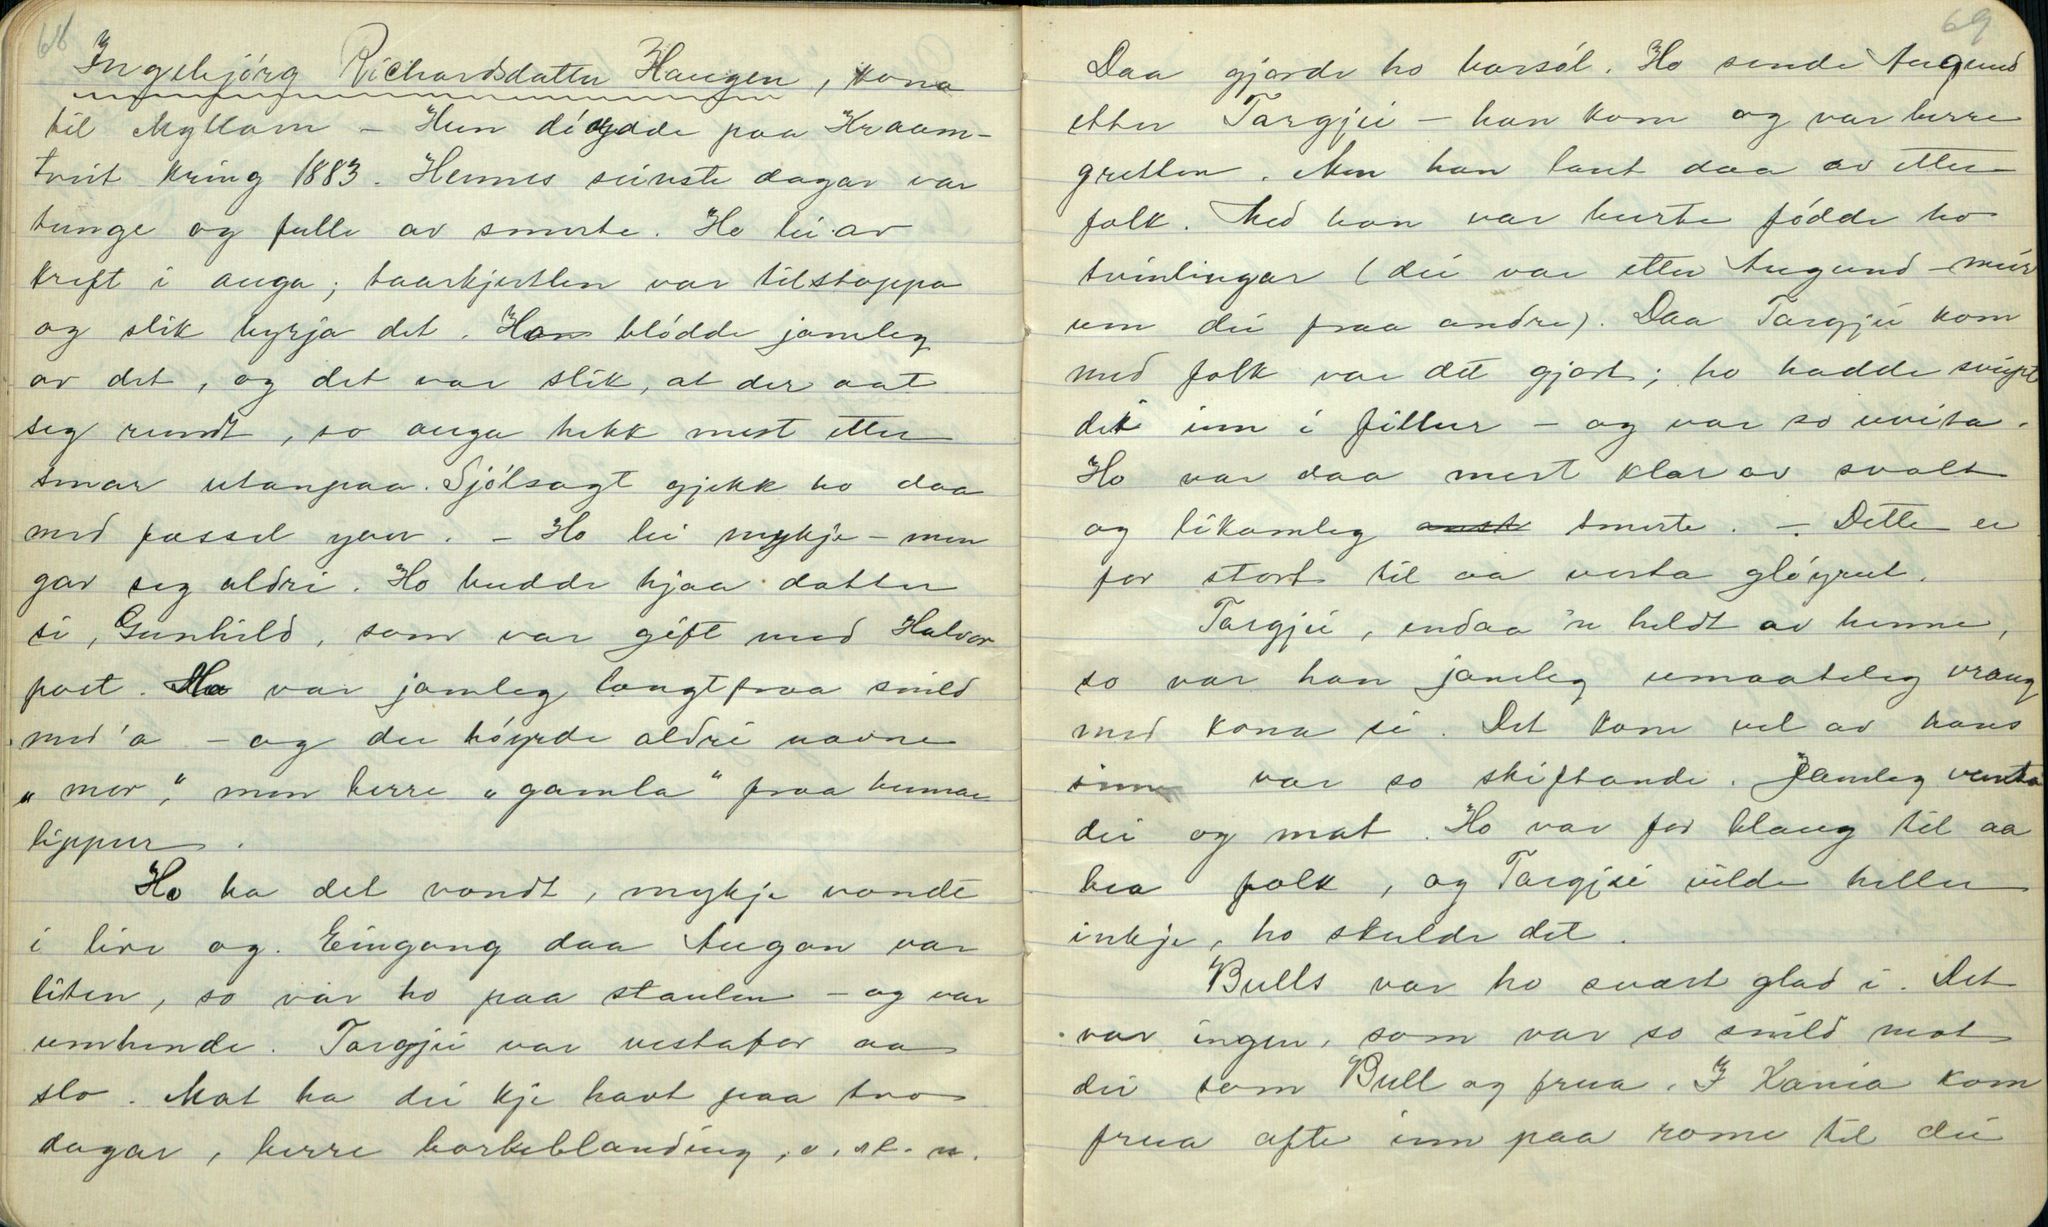 68
Ingebjörg Richardsdatter Haugen, kona
til Myllarn – Hun döydde paa Kraam-
tveit kring 1883. Hennes seinste dagar var
tunge og fulle av smerte. Ho lei av
kreft i auga; taarkjertlen var tilstoppa
og slik byrja det. Han blödde jamleg
av det, og det var slik, at der aat
seg rundt, so auga hekk mest etter
tinar utanpaa. Sjölsagt gjekk ho daa
med fassel yver. – Ho lei mykje – men
gav seg aldri. Ho budde hjaa datter
si, Gunhild, som var gift med Halvor
post. Ho var jamleg langt fraa snild
med 'a – og dei höyrde aldri navne
„mor,“ men berre „gamla“ fraa hennar
lippur.
Ho ha det vondt, mykje vondt
i live og. Eingong daa Augon var
liten, so var ho paa staulen – og var
umhende. Targjei var vestafor aa
slo. Mat ha dei kje havt paa tvo
dagar, berre borkeblanding, o. sl. m.
69
Daa gjorde ho barsöl. Ho sende Augund
etter Targjei – han kom og var berre
gretten. Men han laut daa av etter
folk. Med han var burte födde ho
tvinlingar (dei var etter Augund – meir
um dei fraa andre). Daa Targjei kom
med folk var det gjort; ho hadde sveipt
dei inn i fillur – og var so uvita.
Ho var daa mest klar av svolt
og likamleg smerte. – Dette er
for stort til aa verta glöymt.
Targjei, endaa 'n heldt av henne,
so var han jamleg umaateleg vrang
med kona si. Det kom vel av hans
sinn var so skiftande. Jamleg venta
dei og mat. Ho var for blaug til aa
bea folk, og Targjei vilde heller
inkje, ho skulde det.
Bulls var ho svært glad i. Det
var ingen, som var so snild mot
dei som Bull og frua. I Xania kom
frua ofte inn paa rome til dei